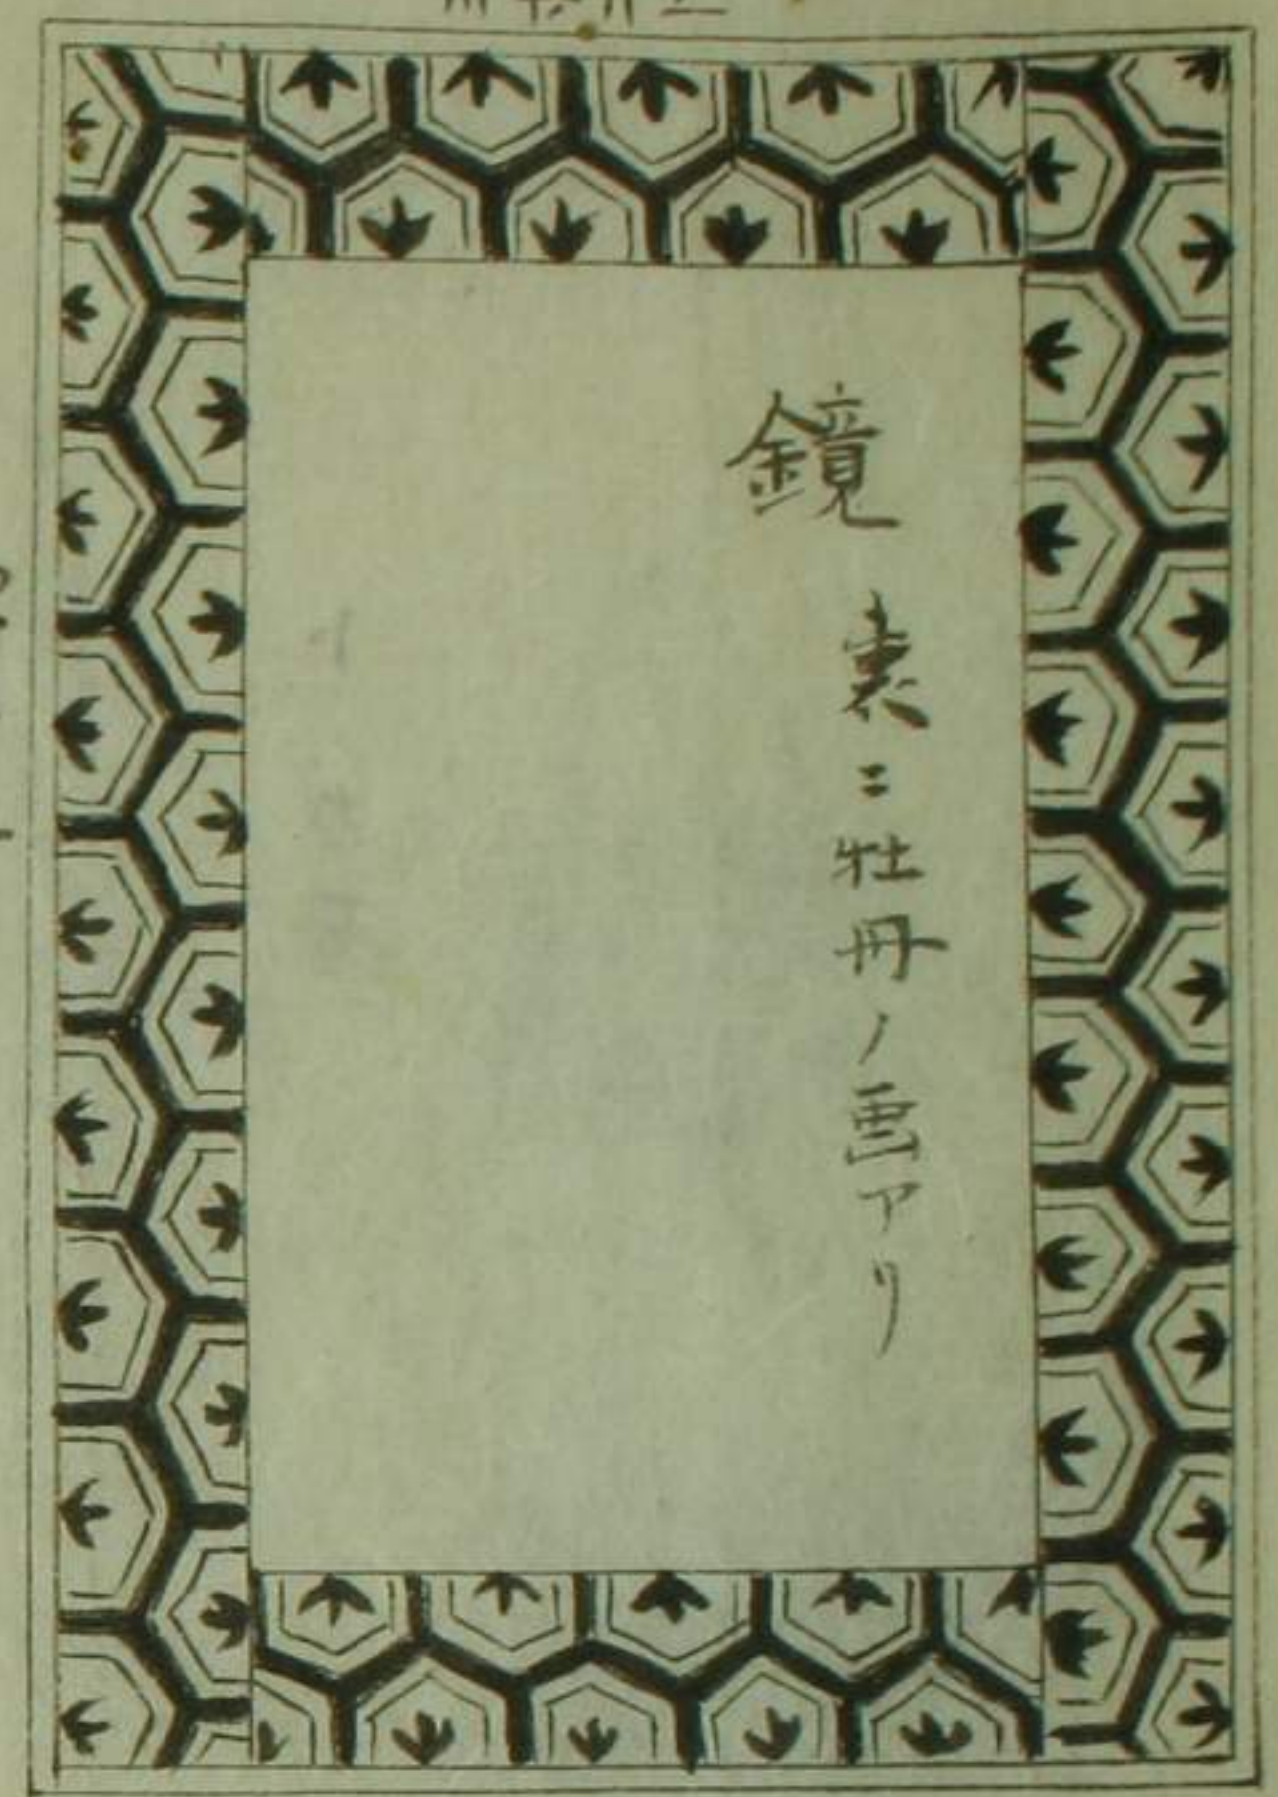 鏡
裏ニ牡丹ノ画アリ